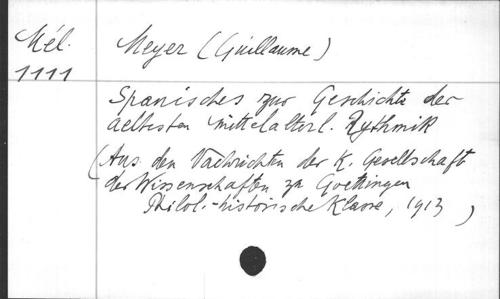 Mél. Meyer (Guillaume)
1111
Spanisches zur Geschichte der
aeltesten mittelalterl. Rythmik
(Aus den Nachrichten der K. Gesellschaft
der Wissenschaften zu Goettingen
Philol.-historische Klasse, 1913)